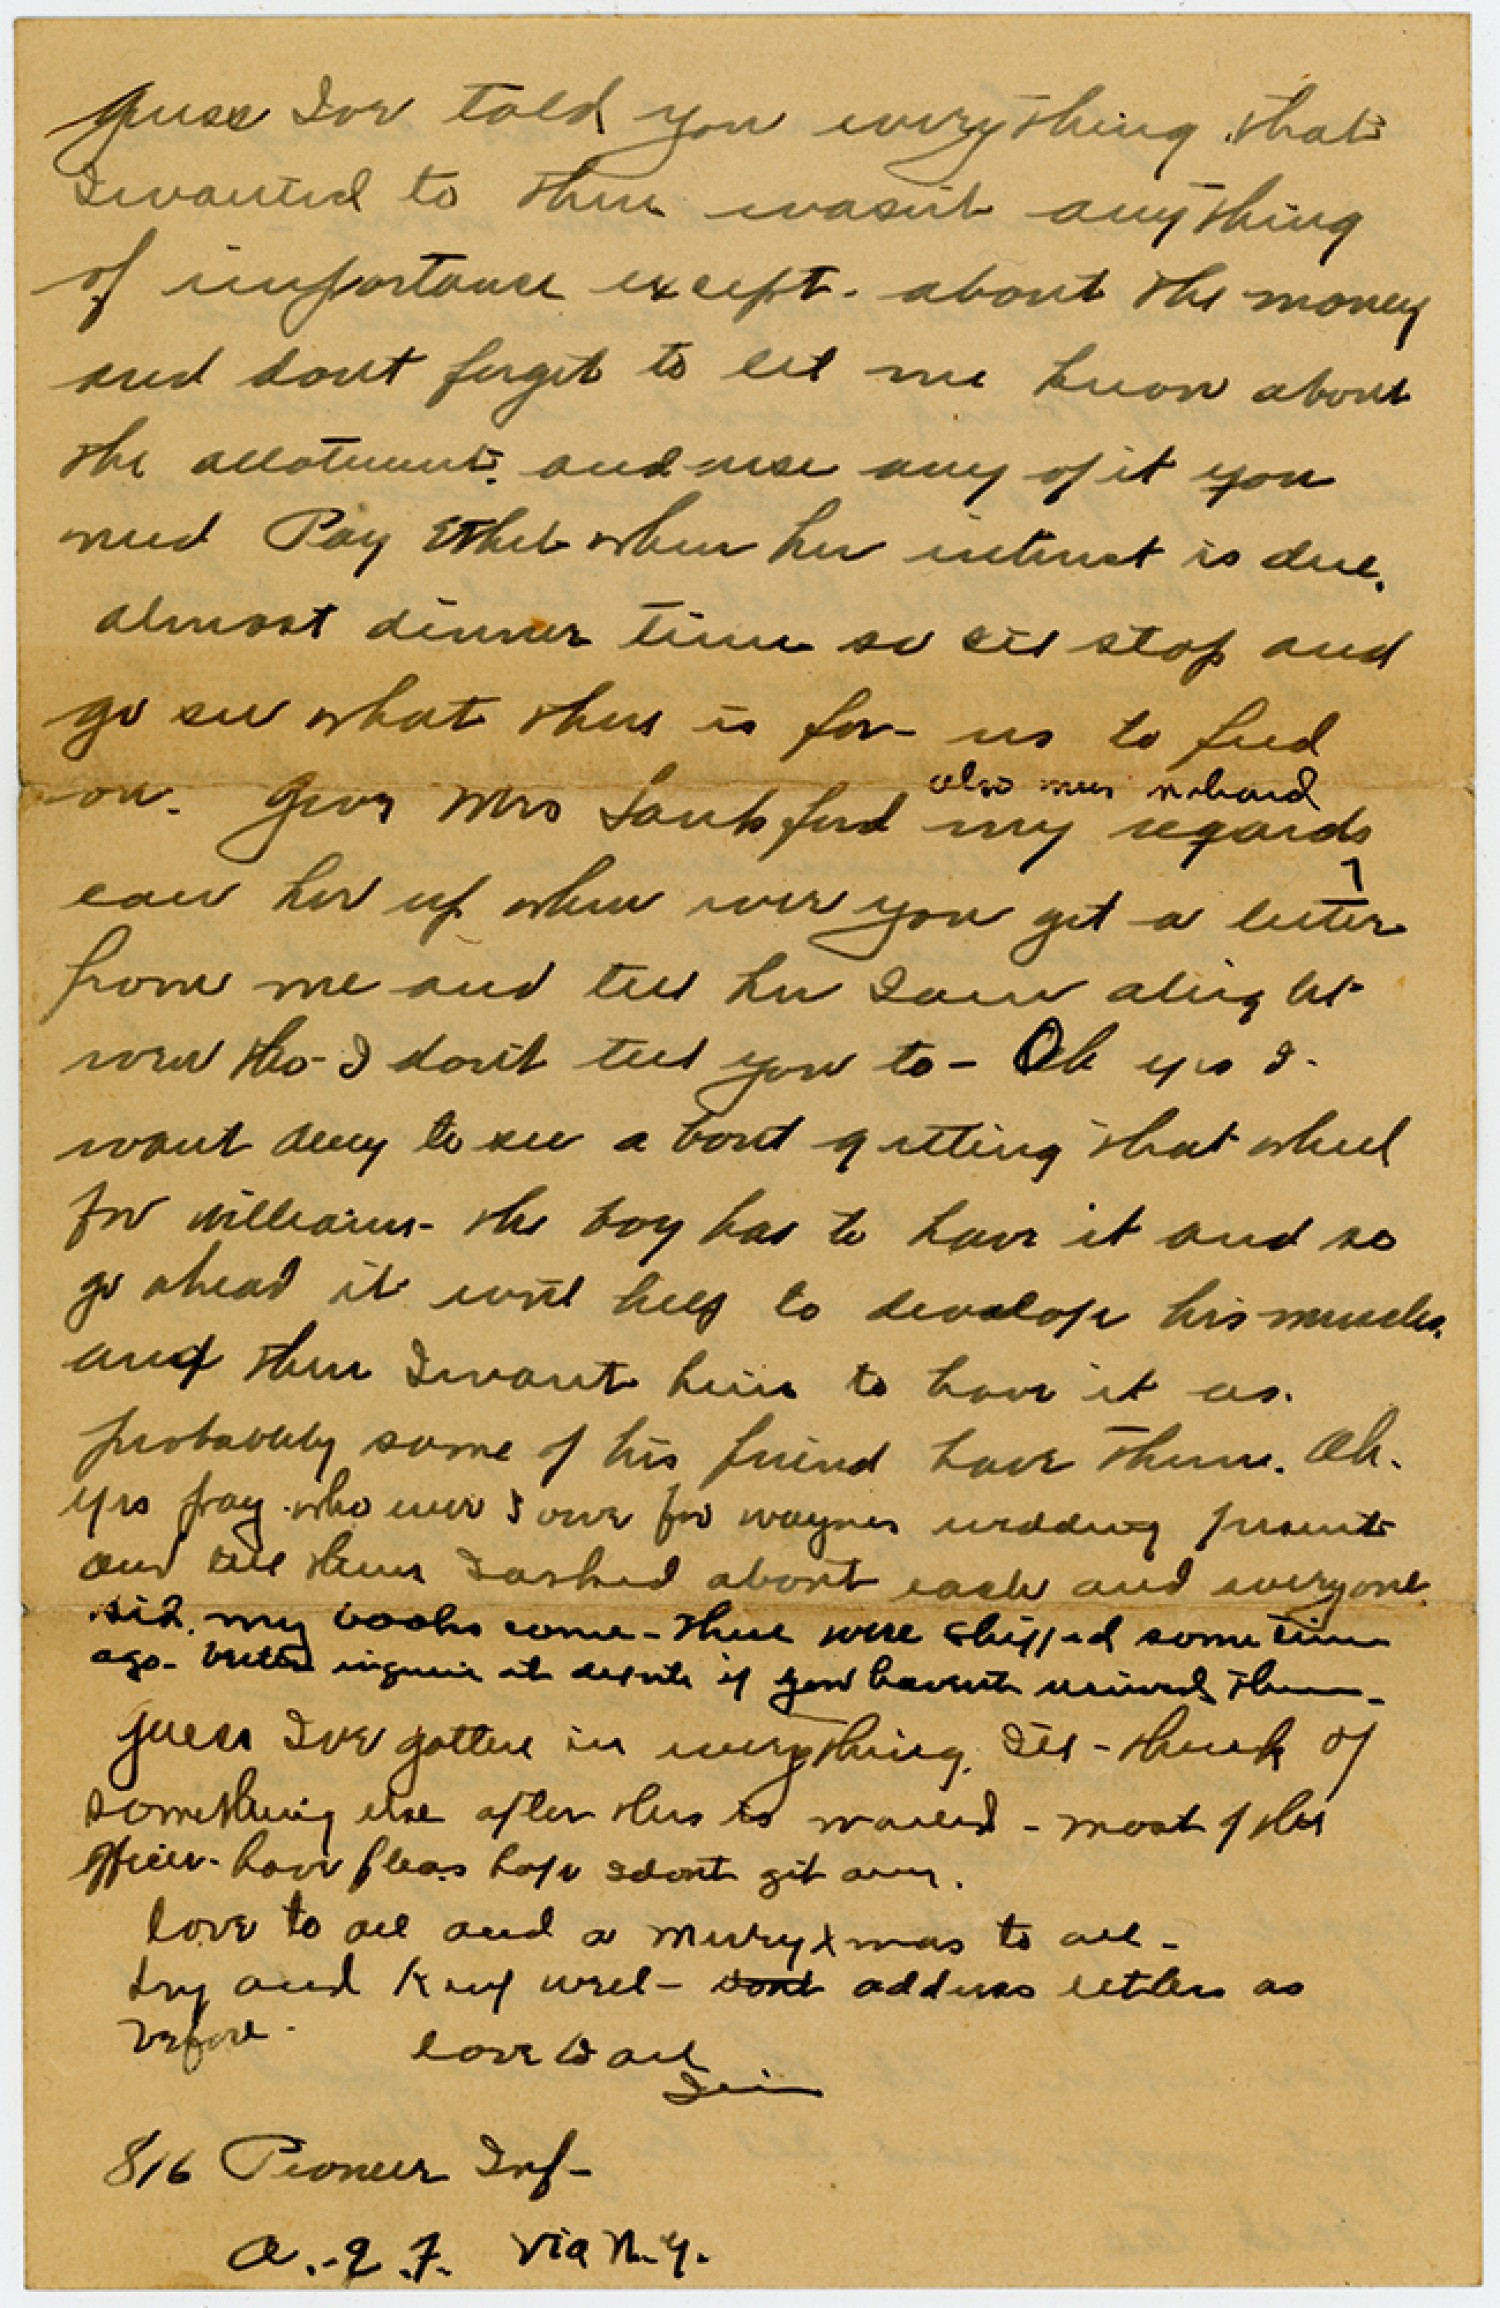 Guess Ive told you everything that
I wanted to there wasn't anything
of importance except. about the money
and dont forget to let me know about
the allotment. and use any of it you
need Pay Ethel when her interest is due.
almost dinner time so Ill stop and
go see what there is for us to feed
on. Give Mrs Lanksford my regards
also Mrs
call her up when ever you get a letter
from me and tell her I am alright
even tho- I don't tell you to- Oh yes I.
want to see about getting that wheel
for Williams- the boy has to have it and so
go ahead it will help to develop his muscles.
and then I want him to have it as.
probably some of his friend have them. Oh.
yes pay who ever I owe for waynes wedding present
and tell them I asked about each and everyone.
did my books come- there were shipped sometime
ago- better inquire at depote if you havent recieved them-
Guess Ive gotten in everything. Ill- think of
something else after this is mailed- most of the
officer- have fleas hope I dont get any.
love to all and a merry xmas to all-
try and keep well- dont address letters as
before- love to all
Jim
816 Pioneer Inf-
A.-E.F. Via N.Y.